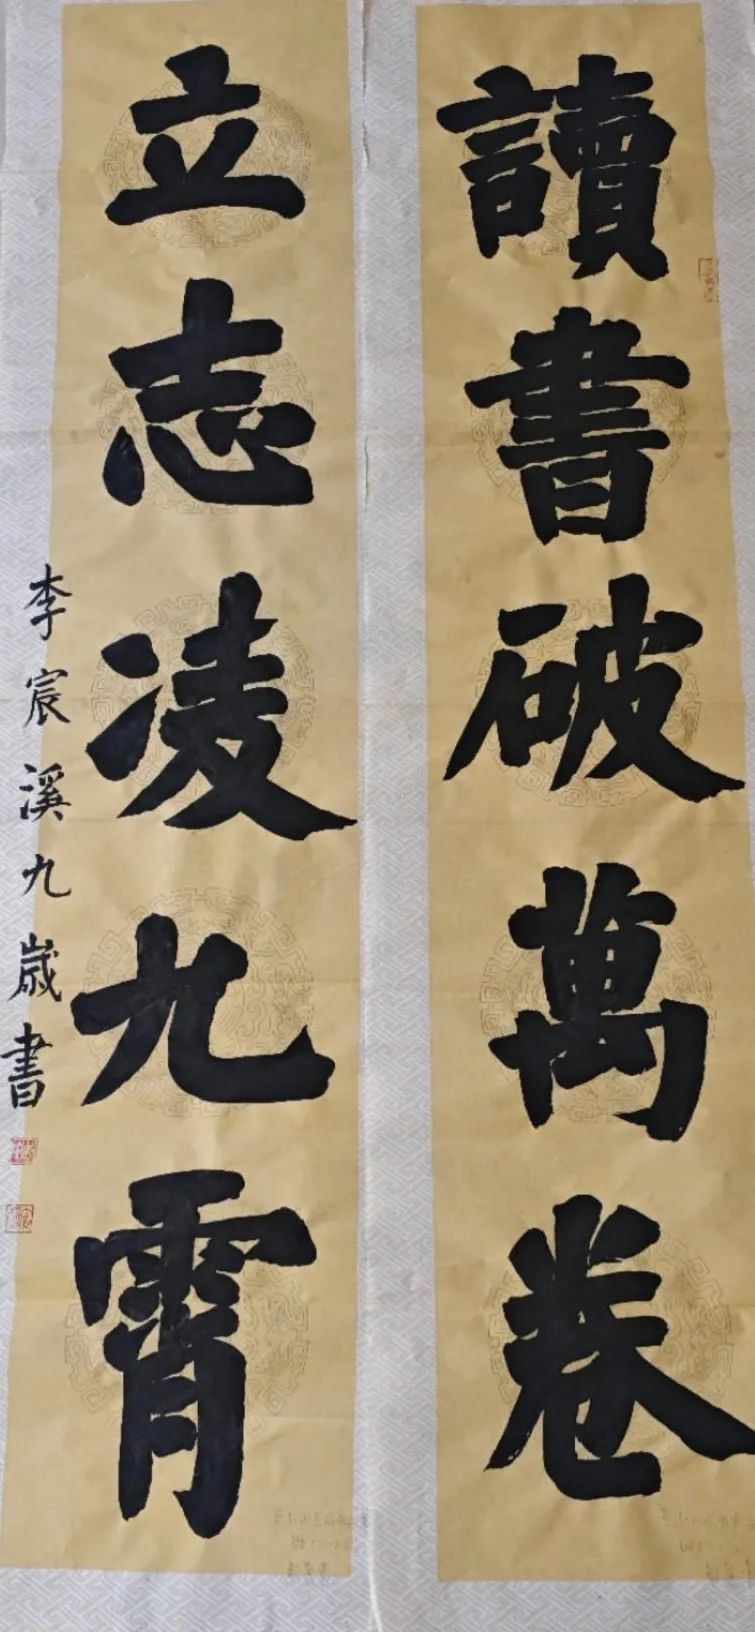 讀書破萬卷
立志凌九霄
李宸溪九歲書